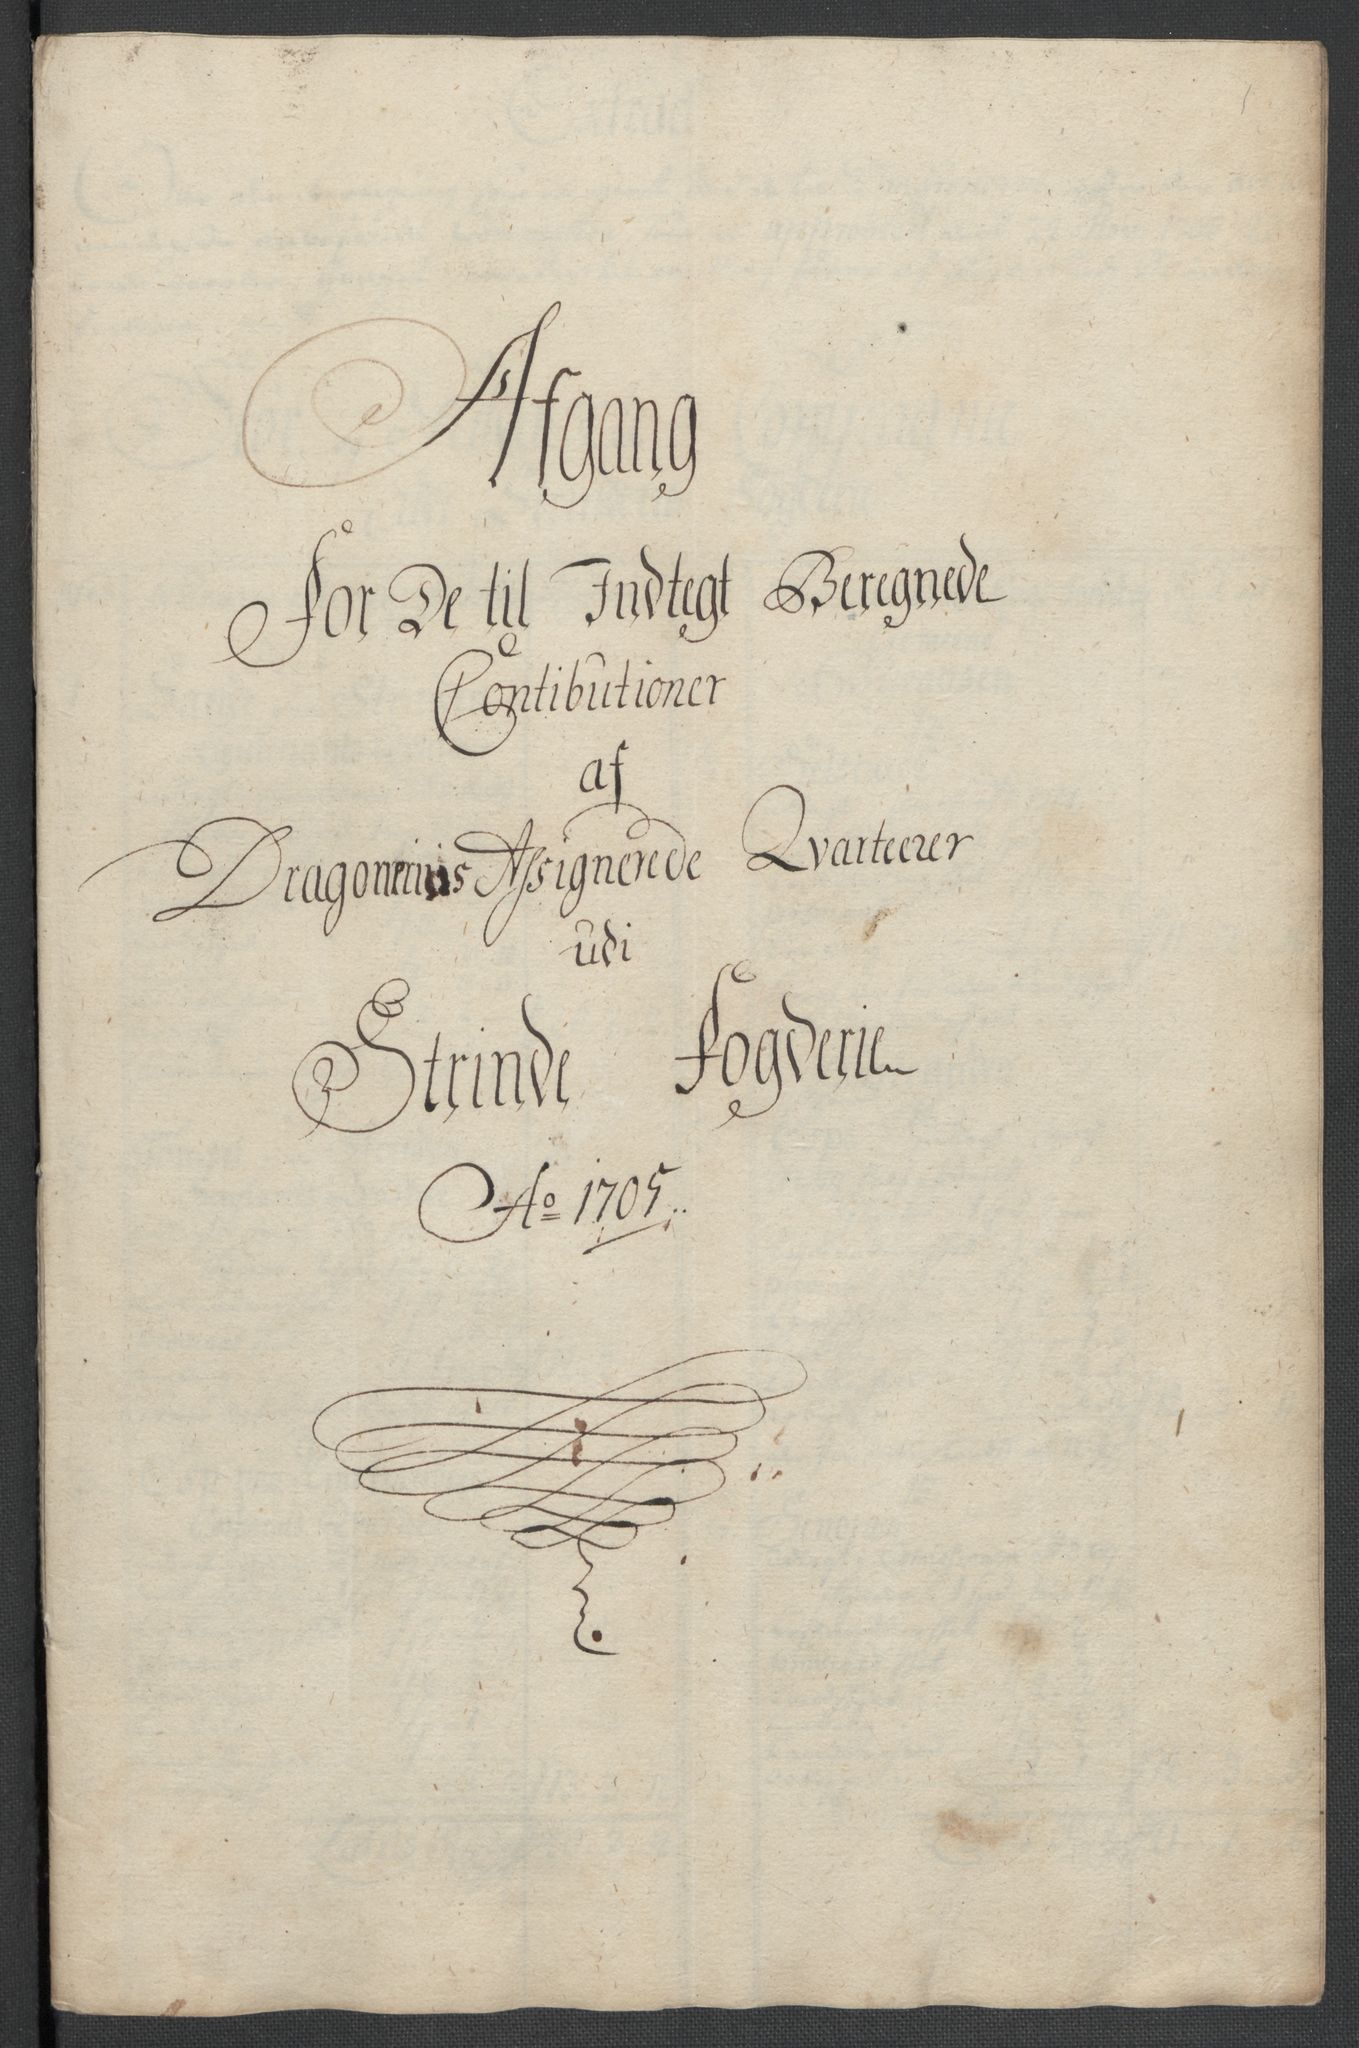 Afgang
For De til Indtegt Beregnede
Contibutioner
af
Assignerede Qvarteerer
udi
Strinde Fogderie
Ao 1705